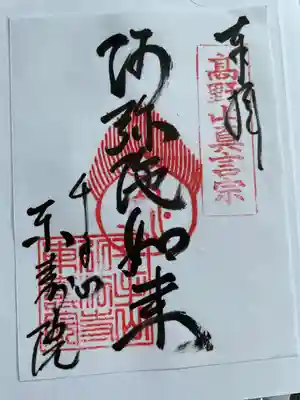 奉拝
高野山真言宗
阿弥陀如来
千手山
東寿院